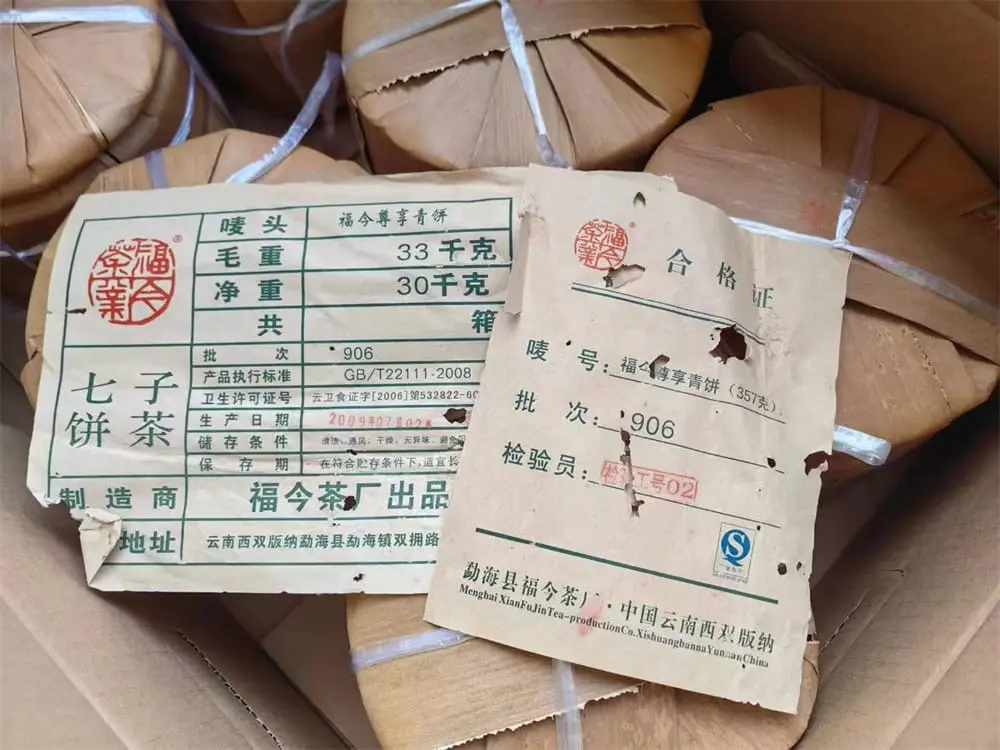 福今茶業
®
唛头 福今尊享青饼
毛重 33千克
净重 30千克
共 箱
批次 906
产品执行标准 GB/T22111-2008
卫生许可证号 云卫食证字[2006]第532822-60
生产日期 2009年07月02
储存条件 清洁、通风、干燥、无异味、避免
保存期 在符合贮存条件下,适宜长
七子
饼茶
制造商 福今茶厂出品
地址 云南西双版纳勐海县勐海镇双拥路
福今茶業
®
合格证
唛号:福今尊享青饼(357克).
批次:906
检验员:检验工号02
勐海县福今茶厂·中国云南西双版纳
Menghai XianFuJinTea-productionCo.XishuangbannaYunnanChina